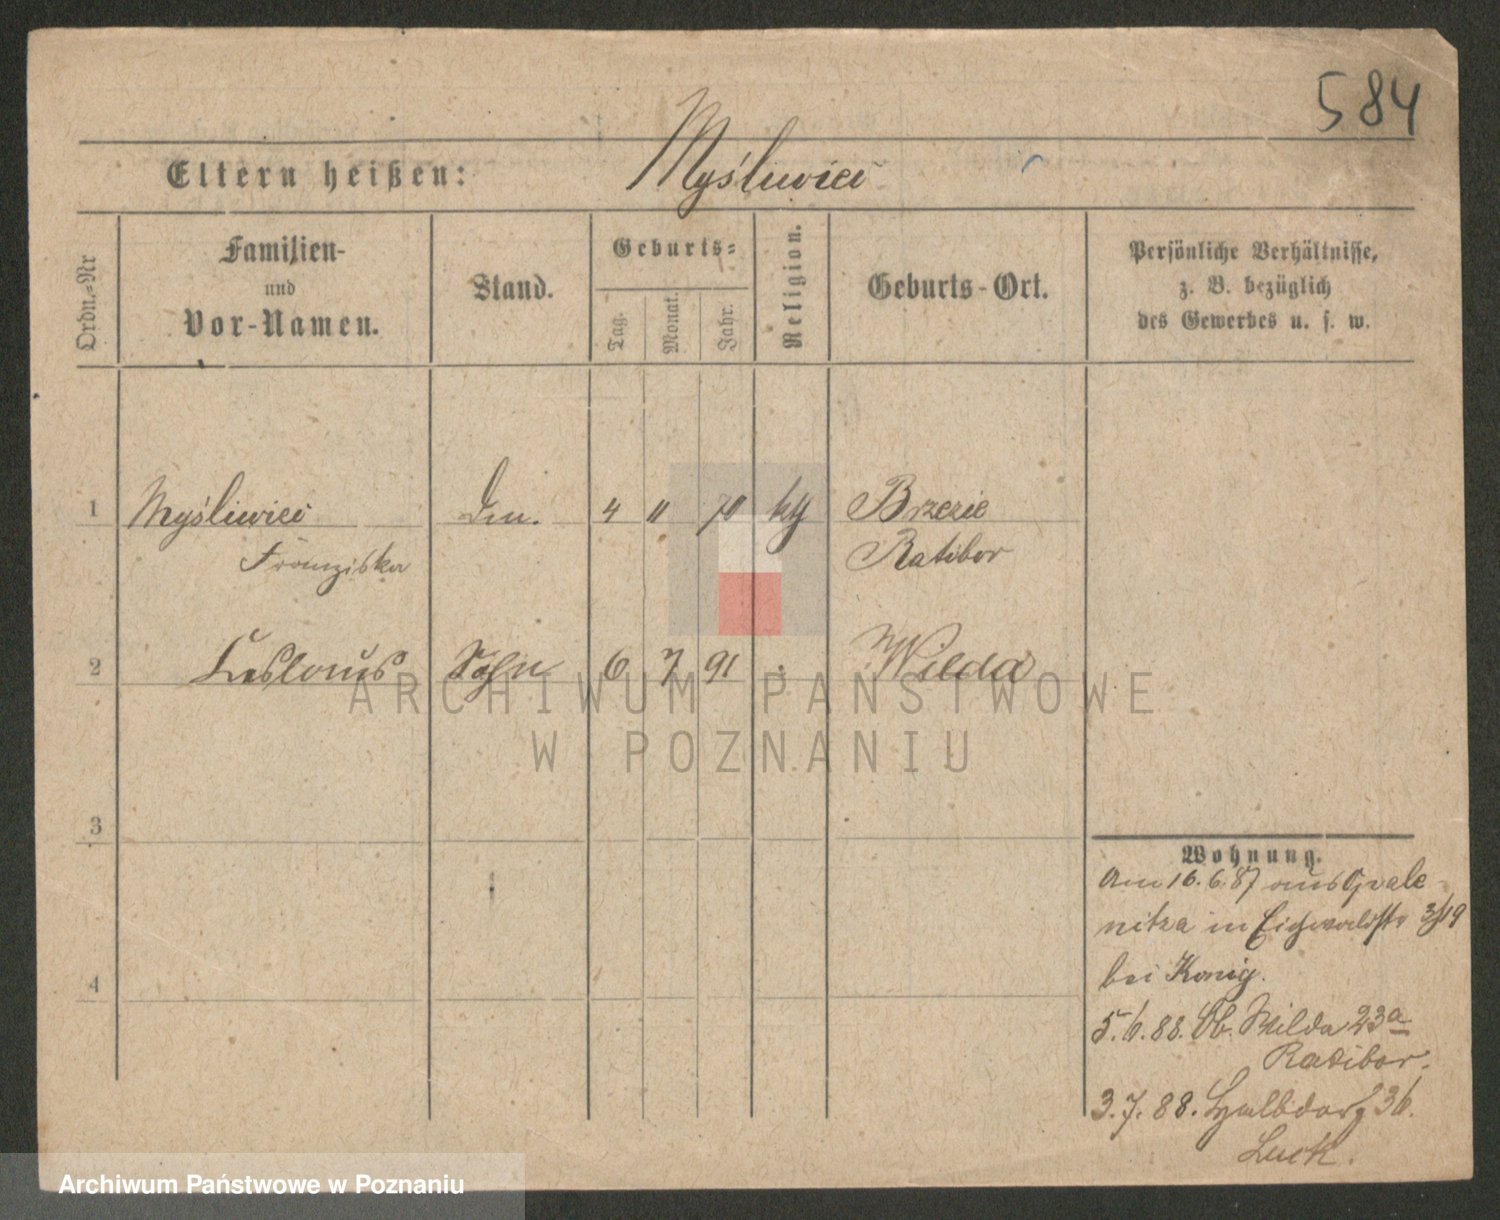 584
Eltern heißen: Myśliwiec
Ordn.-Nr
Familien-
und
Vor-Namen.
Stand.
Geburts-
Tag.
Monat.
Jahr.
Religion.
Geburts-Ort.
Persönliche Verhältnisse,
z. B. bezüglich
des Gewerbes u. s. w.
1 Myśliwiec 4 11 70 Brzezie
Franziska Ratibor
2 Ceslaus Sohn 6 7 91 Wilda
3
4
Wohnung.
Am 16.6.87 aus
nitza in Eichwaldstr 3/19
bei König.
5.6.88. Ob. Wilda 23a
Ratibor.
3.7.88. Halbdorf 36.
Luck.
ARCHIWUM PAŃSTWOWE
W POZNANIU
Archiwum Państwowe w Poznaniu